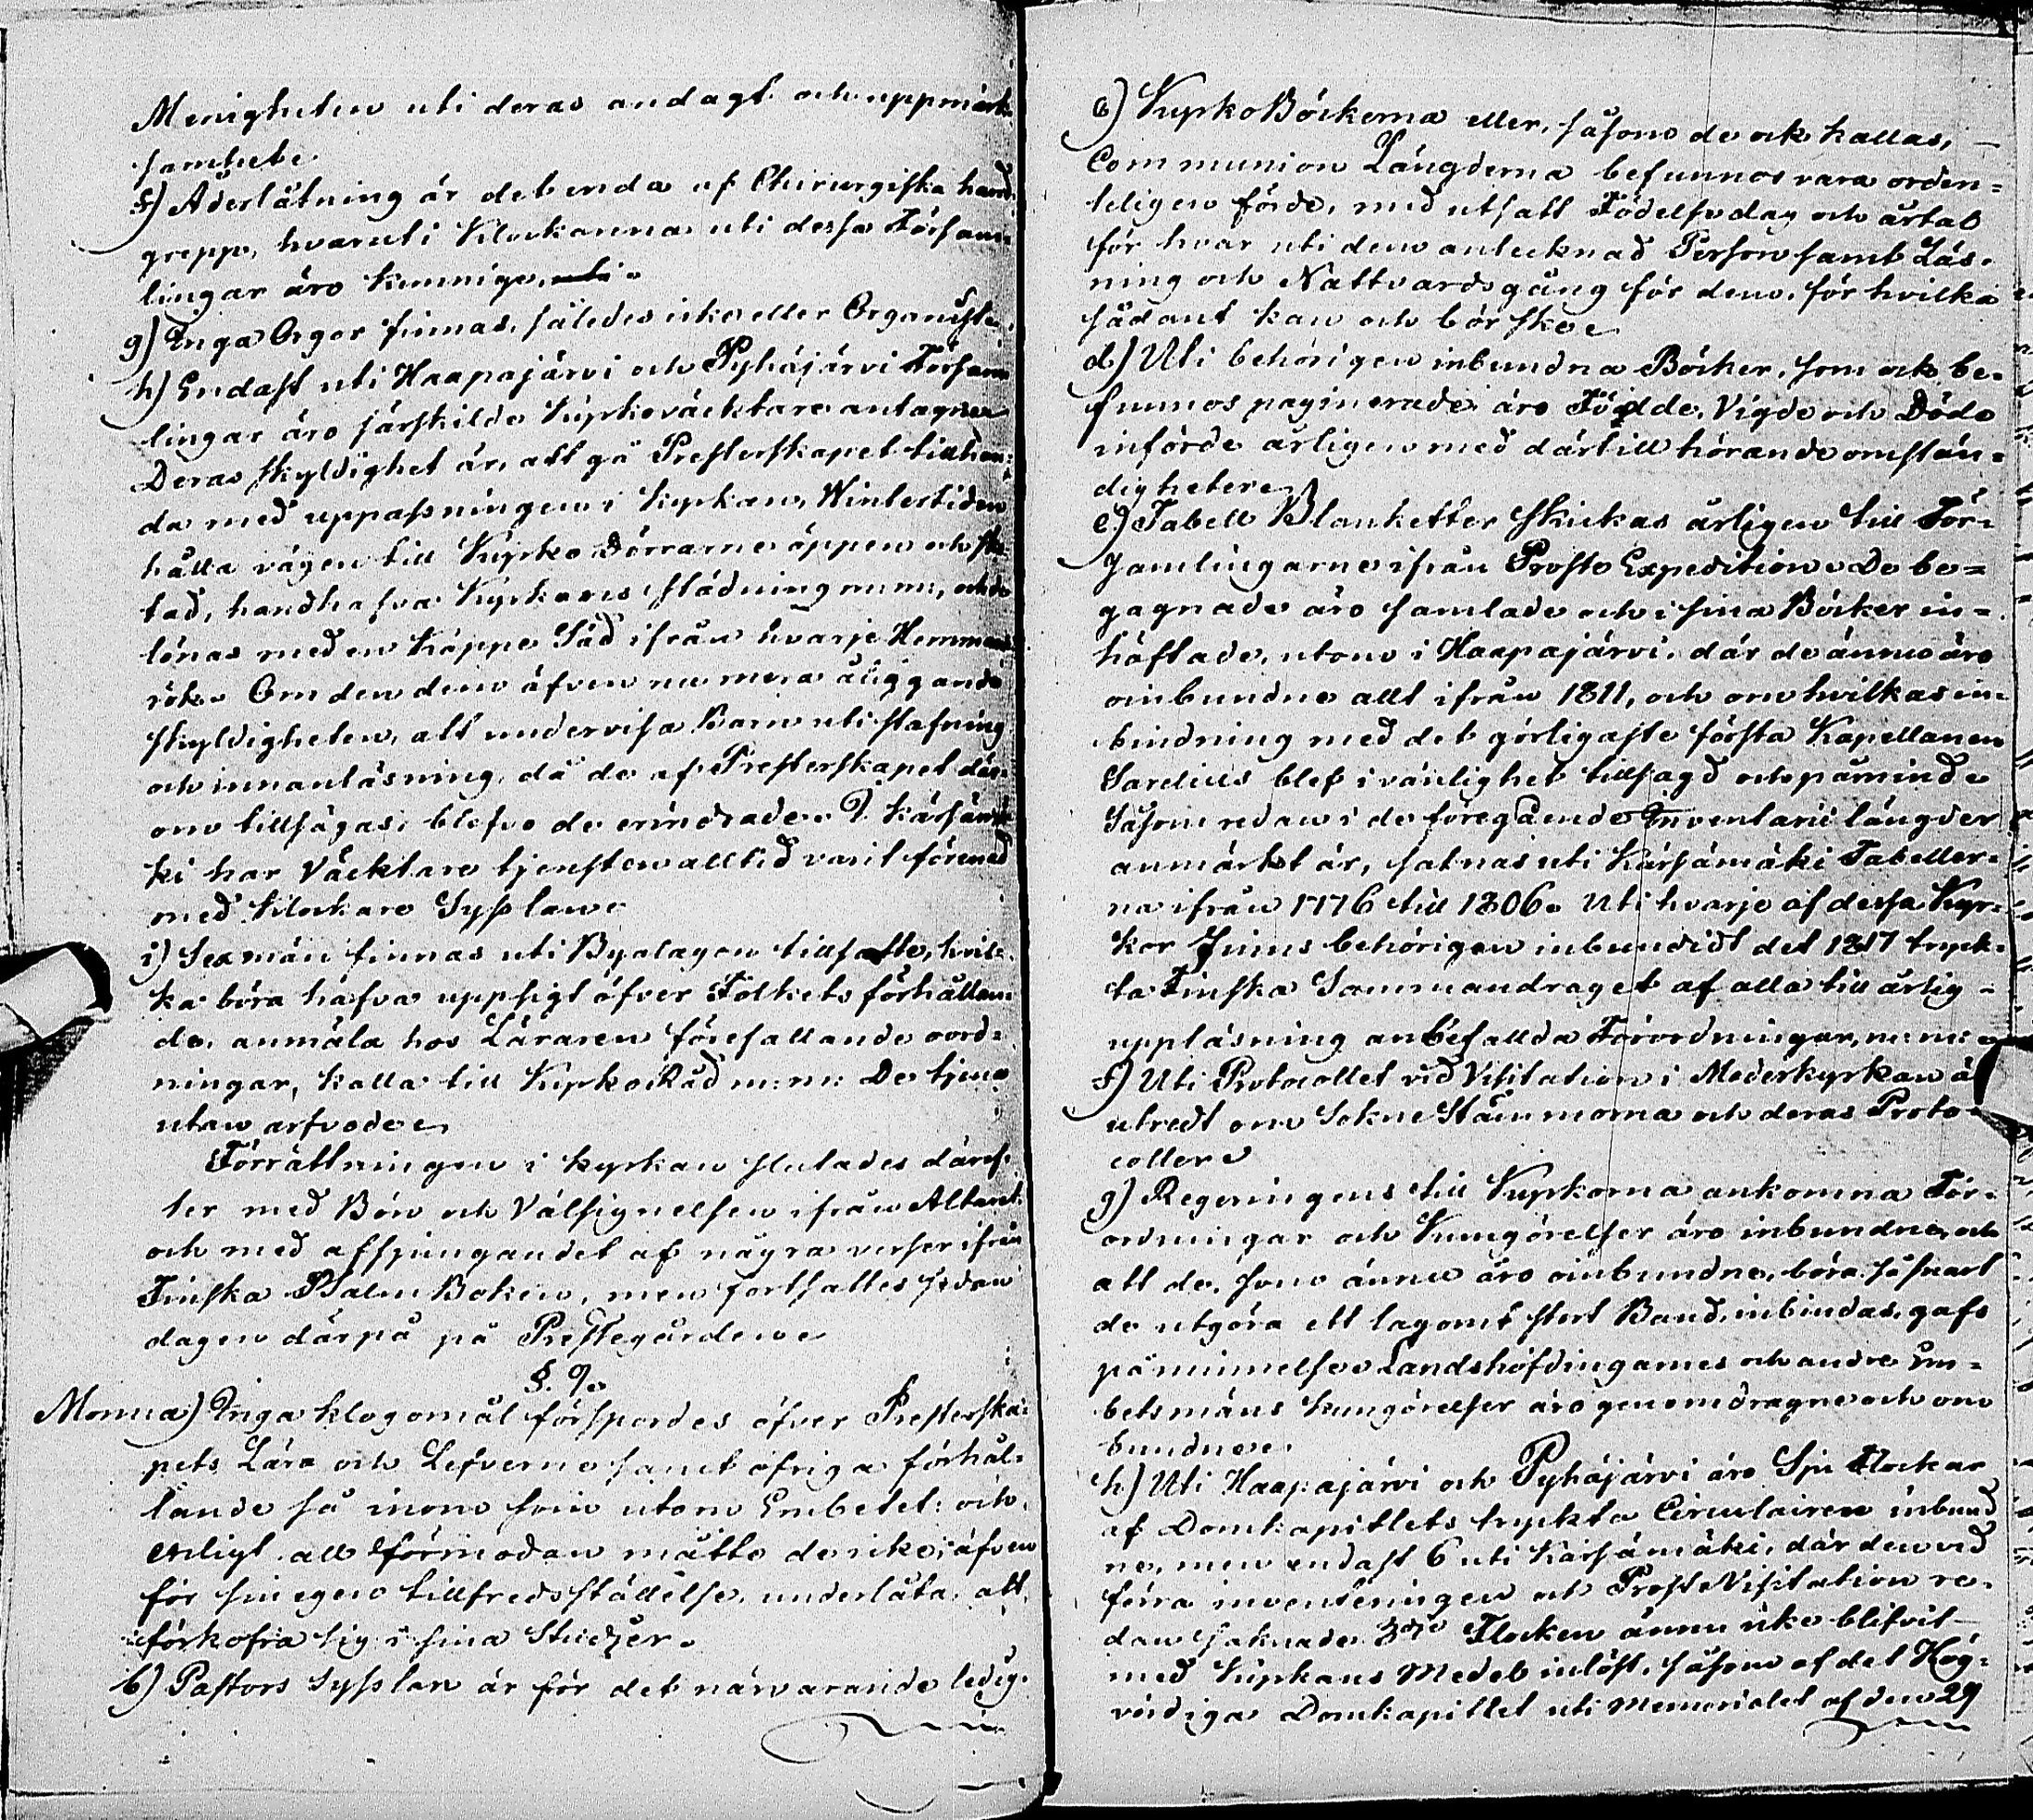 Menigheten uti deras andagt och uppmärk-
samhet.
f) Åderlåtning är det enda af Chirurgiska hand-
grepp, hvaruti Klockarena uti dessa Försam-
lingar äro kunnige.
g) Inga Orgor finnas, således icke eller Organister.
h) Endast uti Haapajärvi och Pyhäjärvi Försam-
lingar äro särskilde Kyrkoväcktare antagne.
Deras skyldighet är, att gå Presterskapet tillhan-
da med uppassningen i Kyrkan, Wintertiden
hålla vägen till Kyrko Dörrarne öppen och sko-
tad, handhafva Kyrkans städning m:m:, och de
lönas med en Kappe Säd ifrån hvarje Hemmans
rök. Om den dem äfven nu mera åliggande
skyldigheten, att undervisa Barn uti stafning
och innanläsning, då de af Presterskapet där-
om tillsägas, blefvo de erindrade. I Kärsämä-
ki har Väcktare tjensten alltid varit förened
med Klockare Sysslan.
i) Sexmän finnas uti Byalagen tillsatte, hvil-
ka böra hafva uppsigt öfver Folkets förhållan-
de, anmäla hos Läraren förefallande oord-
ningar, kalla till KyrkoRåd m:m: De tjena
utan arfvode.
Förrättningen i kyrkan slutades däref-
ter med Bön och Välsignelsen ifrån Altaret
och med afsjungandet af några verser ifrån
Finska PsalmBoken, men fortsattes sedan
dagen därpå på Prestegården.
§. 9.
Mom: a) Inga klogomål förspordes öfver Presterska-
pets Lära och Lefverne samt öfriga förhål-
lande så inom som utom Embetet: och,
enligt all förmodan måtte de icke, äfven
för sin egen tillfredsställelse, underlåta, att
förkofra sig i sina Studier.
b) Pastors Sysslan är för det närvarande ledig.
c) KyrkoBöckerna eller, såsom de ock kallas,
Communion Längderna befunnos vara orden-
teligen förde, med utsatt Födelsedag och årtal
för hvar uti dem antecknad Person samt Läs-
ning och Nattvardsgång för dem, för hvilka
sådant kan och bör ske.
d) Uti behörigen inbundna Böcker, som ock be-
funnos paginerade äro Födde, Vigde och Döde
införde årligen med därtill hörande omstän-
digheter.
e) Tabell Blanketter skickas årligen till För-
samlingarne ifrån Prosts Expedition. De be-
gagnade äro samlade och i sina Böcker in-
häftade, utom i Haapajärvi, där de ännu äro
oinbundne allt ifrån 1811, och om hvilkas in-
bindning med det görligaste första Kapellanen
Sardius blef i vänlighet tillsagd och påmind.
Såsom redan i de föregående Inventarii längder
anmärkt är, saknas uti Kärsämäki Tabeller-
na ifrån 1776 till 1806. Uti hvarje af dessa Kyr-
kor finns behörigen inbundidt det 1817 tryck-
ta Finska Sammandraget af alla till årlig
uppläsning anbefallda Förordningar, m:m:
f) Uti Protocollet vid Visitation i Moderkyrkan är
utredt om Sokne Stämmorna och deras Proto-
coller.
g) Regeringens till Kyrkorna ankomna För-
ordningar och Kungörelser äro inbundne, och
att de, som ännu äro oinbundne, böra, så snart
de utgöra ett lagomt stort Band, inbindas, gafs
påminnelse. Landshöfdingarnes och andre Em-
betsmäns kungörelser äro genomdragne och om
bundne.
h) Uti Haapajärvi och Pyhäjärvi äro Sju Flockar
af Domkapitlets tryckta Circulairer inbund-
ne, men endast 6 uti Kärsämäki, där den vid
förra inventeringen och ProstVisitation re-
dan saknade 3dje Flocken ännu icke blifvit
med Kyrkans Medel inlöst, såsom af det Hög-
vördiga Domkapitlet uti Memorialet af den 29